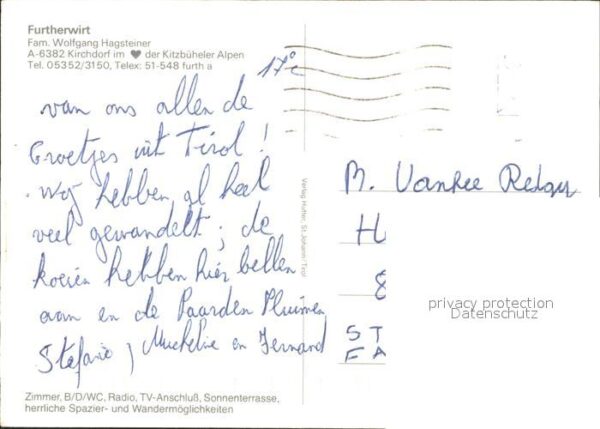 Furtherwirt
Fam. Wolfgang Hagsteiner
A-6382 Kirchdorf im ♥ der Kitzbüheler Alpen
Tel. 05352/3150, Telex: 51-548 furth a
17°c
van ons allen de
Groetjes uit Tirol !
Wij hebben al heel
veel gewandelt ; de
koeien hebben hier bellen
aan en de Paarden Pluimen
Stefanie, en Fernand
Verlag Hutter, St. Johann - Tirol
M. Vanhee
H
8
ST
FA
privacy protection
Datenschutz
Zimmer, B/D/WC, Radio, TV-Anschluß, Sonnenterrasse,
herrliche Spazier- und Wandermöglichkeiten